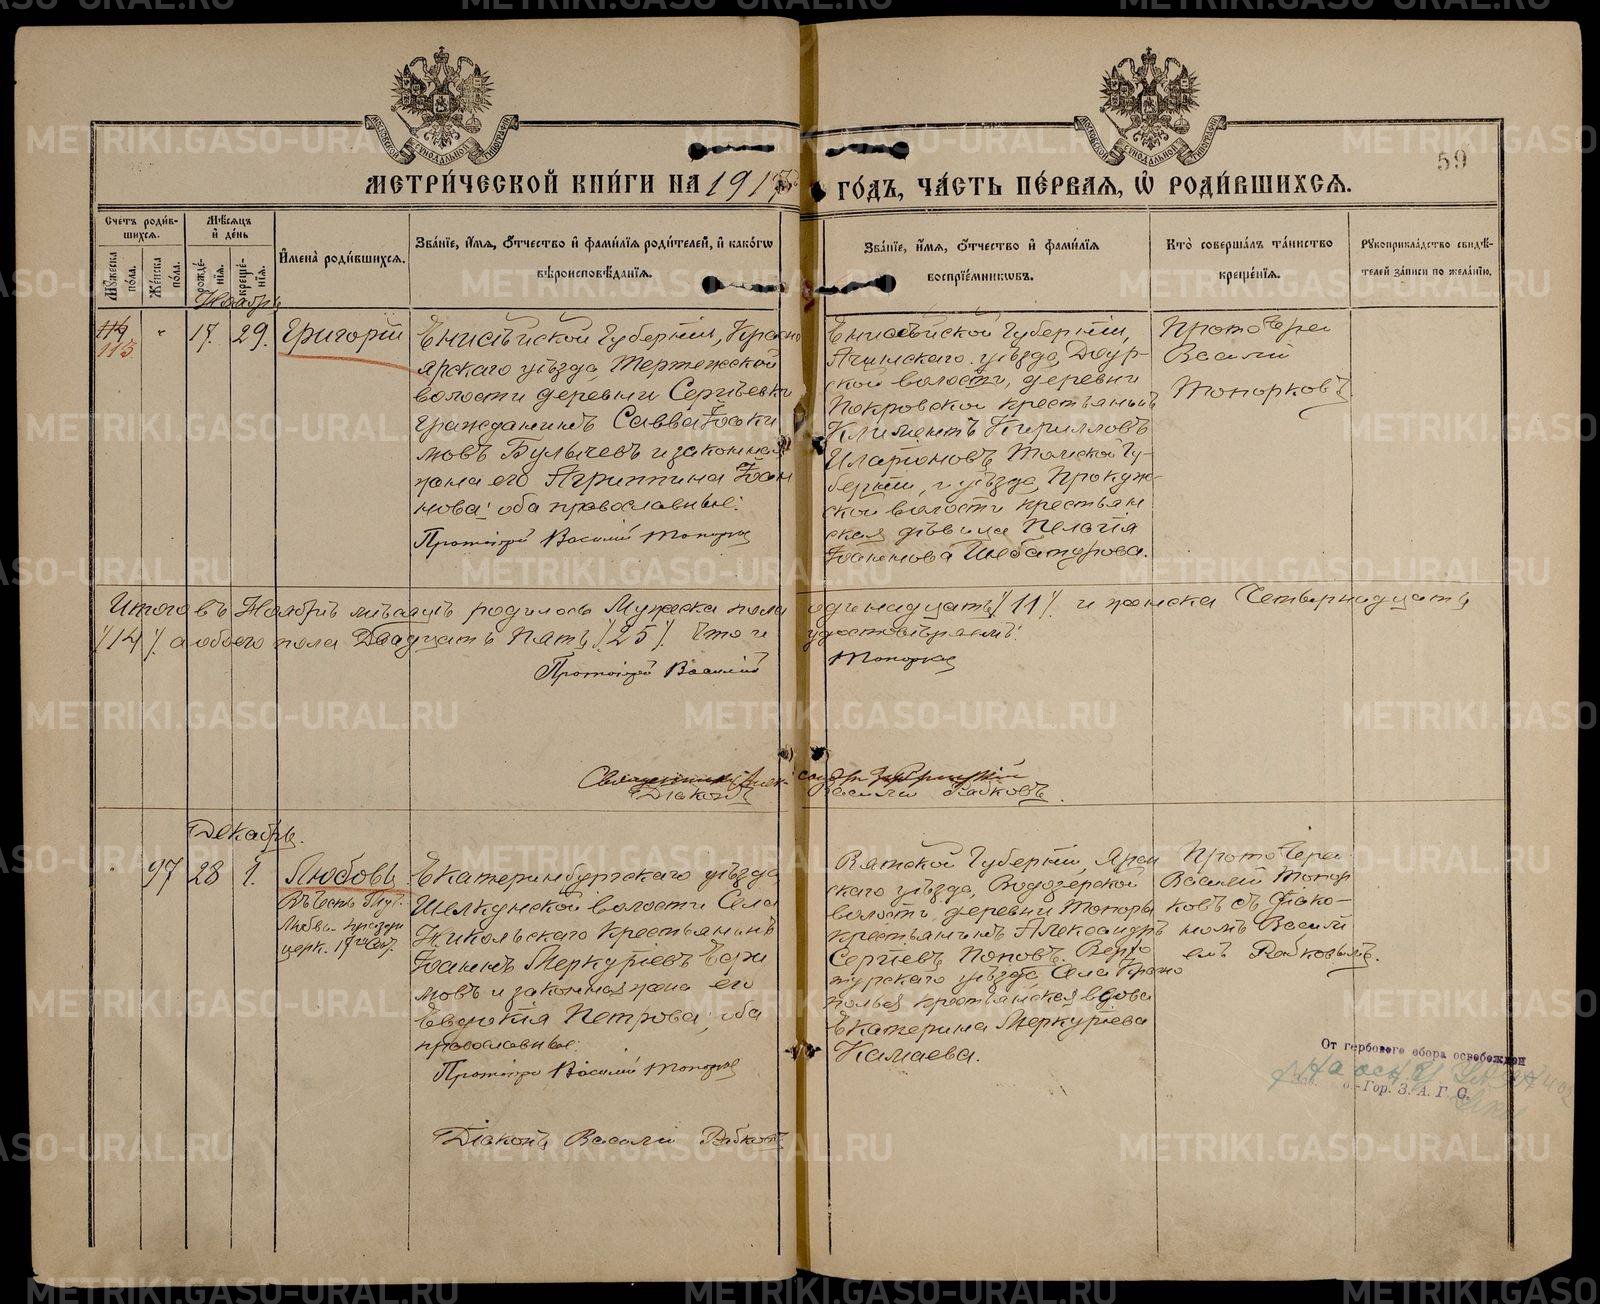 59
МЕТРИ́ЧЕСКОЙ КНИ́ГИ НА 1917 ГО́ДЪ, ЧА́СТЬ ПЕ́РВАЯ, Ѡ РОДИ́ВШИХСЯ.
Счетъ роди́вшихся.
Мужеска пола.
Же́нска пола.
Мѣсяцъ и де́нь
рожде́нїя.
креще́нїя.
Имена̀ роди́вшихся.
Зва́нїе, и́мя, о́тчество и фами́лїя роди́телей, и како́гѡ
вѣроисповѣ́данїя.
Зва́нїе, и́мя, о́тчество и фами́лїя
воспрїе́мникѡвъ.
Кто̀ соверша́лъ та́инство
креще́нїя.
Рукоприкла́дство свидѣ́-
телей за́писи по жела́нїю.
Ноябрь
114
113
"
17.
29.
Григорій
Енисейской Губерніи, Красно
ярскаго уѣзда,
волости деревни Сергѣевки
гражданинъ Савва Іоаки
мовъ Булычевъ и законная
жена его Агриппина Іоан
нова; оба православные:
Протоіерей Василій Топорков
Енисейской Губерніи,
Ачинскаго уѣзда, Даур-
ской волости, деревни
Покровской крестьянинъ
Климентъ Кирилловъ
Иларіоновъ Томской Гу-
берніи, и уѣзда,
ской волости крестьян
ская дѣвица Пелагія
Іоаннова
Протоіерей
Василій
Топорковъ.
Итого въ Ноябрѣ мѣсяцѣ родилось Мужеска пола одинадцать /11/ и женска Четырнадцать
/14/ а обоего пола Двадцать Пять /25/. Что и удостовѣряемъ:
Протоіерей Василій Топорков
Священникъ
Діаконъ Василій Рябковъ.
Декабрь.
97
28
1.
Любовь
Въ честь Муч.
Любви
церк. 17го Сен.
Екатеринбургскаго уѣзда,
Шелкунской волости Села
Никольскаго крестьянинъ
Іоаннъ Меркуріевъ
мовъ и законная жена его
Евдокія Петрова; оба
православные:
Протоіерей Василій Топорков
Діаконъ Василій Рябковъ
Вятской Губерніи, Яран
скаго уѣзда, Водозерской
волости, деревни Топоры
крестьянинъ Александръ
Сергіевъ Поповъ. Верхо
турскаго уѣзда, Села Красно
полья крестьянская вдова
Екатерина Меркуріева
Камаева.
Протоіерей
Василій Топор
ковъ съ Діако-
номъ Васили
емъ Рябковымъ.
От гербового сбора освобежден
Гор. З. А. Г. С.
METRIKI.GASO-URAL.RU